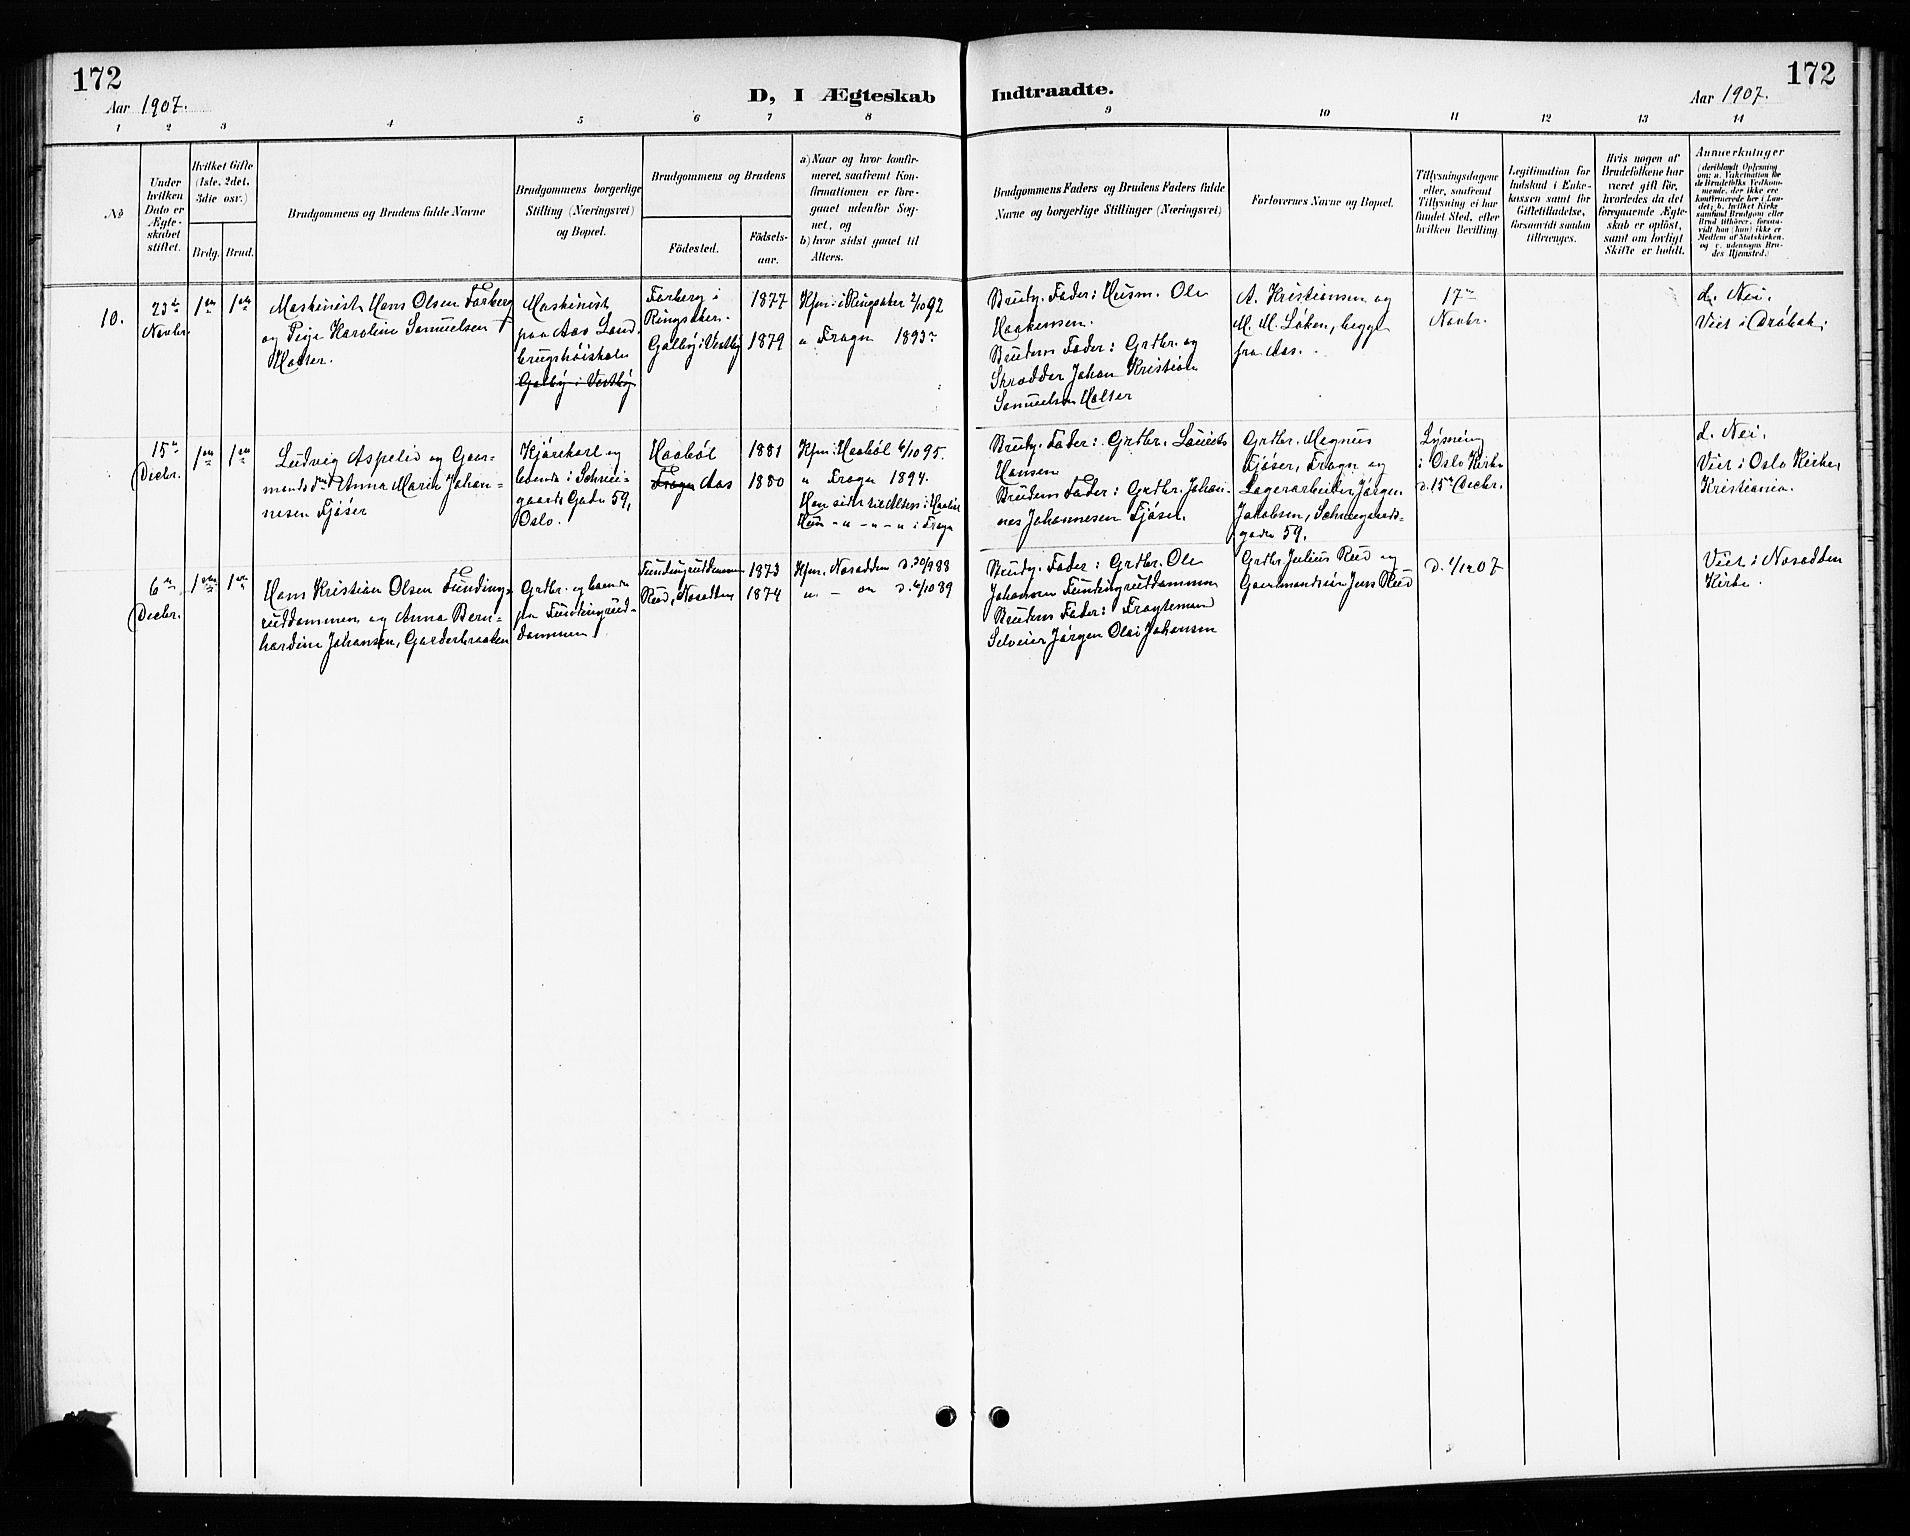 172
Aar 1907.
D, I Ægteskab
Indtraadte.
Aar 1907.
172
1 2 3 4 5 6 7 8 9 10 11 12 13 14
No
Under
hvilken
Dato er
Ægte-
skabet
stiftet.
Hvilket Gifte
(1ste, 2det,
3die osv.)
Brdg. Brud.
Brudgommens og Brudens fulde Navne
Brudgommens borgerlige
Stilling (Næringsvei)
og Bopæl.
Brudgommens og Brudens
Födested.
Födsels-
aar.
a) Naar og hvor konfir-
meret, saafremt Kon-
firmationen er fore-
gaaet udenfor Sog-
net, og
b) hvor sidst gaaet til
Alters.
Brudgommens Faders og Brudens Faders fulde
Navne og borgerlige Stillinger (Næringsvei)
Forlovernes Navne og Bopæl.
Tillysningsdagene
eller, saafremt
Tillysning ei har
fundet Sted, efter
hvilken Bevilling
Legitimation for
Indskud i Enke-
kassen samt for
Giftetilladelse,
forsaavidt saadan
tiltrænges.
Hvis nogen af
Brudefolkene har
været gift för,
hvorledes da det
foregaaende Ægte-
skab er oplöst,
samt om lovligt
Skifte er holdt.
Anmerkninger
(deriblandt Oplysning
om: a. Vakcination for
de Brudefolks Vedkom-
mende, der ikke ere
konfirmerede her i Lan-
det; b. hvilket Kirke-
samfund Brudgom eller
Brud tilhörer, forsaa-
vidt han (hun) ikke er
Medlem af Statskirken,
og c. udensogns Bru-
des Hjemsted.)
10.
23de
Novbr.
1ste 1ste
Maskinist Hans Olsen Farberg
og Pige Karoline Samuelsen
Holter.
Maskinist
paa Aas Land
brugshöiskole
Galby i Vestby
Farberg i
Ringsaker.
Galby i Vestby
1877
1879
Kfm. i Ringsaker 2/10 92
" Frogn 1893
Brudg. Fader: Husm. Ole
Haakensen.
Brudens Fader: Grdbr. og
Skrædder Johan Kristian
Samuelsen Holter
A. Kristiansen og
M. M. Løken, begge
fra Aas.
17de
Novbr.
d. Nei.
Viet i Drøbak.
15de
Decbr.
1ste 1ste
Ludvig Aspelid og Gaar-
mandsd. Anna Marie Johan-
nesen Fjøser
Kjørekarl og
boende i Schwei-
gaards Gade 59,
Oslo.
Haabøl
Frogn Aas
1881
1880
Kfm. i Haabøl 6/10 95.
" Frogn 1894.
Han sidst til Alters i Haabøl
Hun - " - " - " i Frogn
Brudg. Fader: Grdbr. Laurits
Hansen
Brudens Fader: Grdbr. Johan-
nes Johannesen Fjøser.
Grdbr. Magnus
Fjøser, Frogn og
Lagerarbeider Jørgen
Jakobsen, Schweigaards-
gade 59.
Lysning
i Oslo Kirke
d. 15de Decbr.
d. Nei.
Viet i Oslo Kirke,
Kristiania.
6te
Decbr.
1ste 1ste
Hans Kristian Olsen Funding-
ruddammen og Anna Bern-
hardine Johansen, Garderbraaten
Grdbr. og boende
paa Fundingrud-
dammen
Fundingruddammen
Rud, Nesodden
1873
1874
Kfm. Nesodden d. 30/9 88
" - on d. 6/10 89
Brudg. Fader: Grdbr. Ole
Johansen Fundingruddammen
Brudens Fader: Fragtemand
Selveier Jørgen Olai Johansen
Grdbr Julius Rud og
Gaardmandssøn Jens Rud
d. 1/12 07
Viet i Nesodden
Kirke.